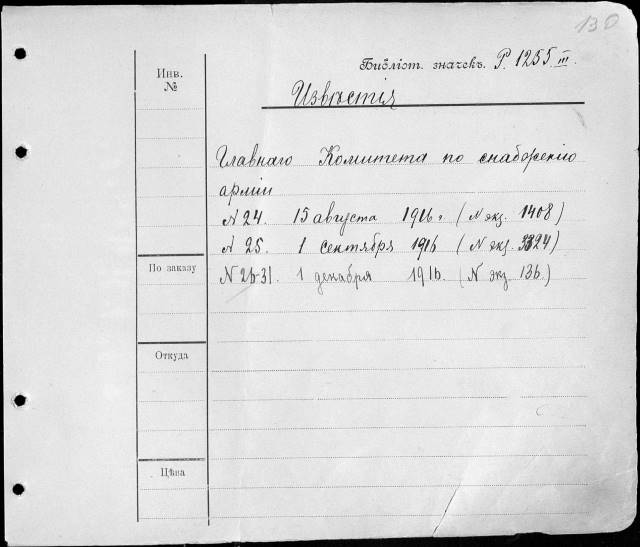 130
Библіот. значекъ. Р. 1255 III.
Инв.
№
Извѣстія
Главнаго Комитета по снабженію
арміи
N 24. 15 августа 1916 г. (N экз. 1408)
N 25. 1 сентября 1916 (N экз. 3324)
По заказу
N 26-31. 1 декабря 1916. (N экз 136.)
Откуда
Цѣна